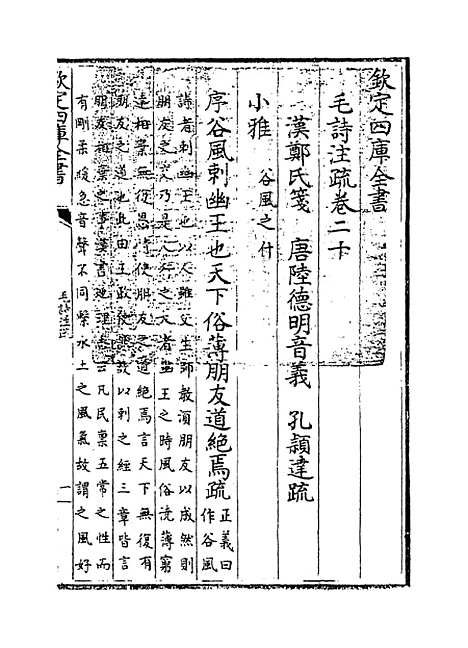 欽定四庫全書
毛詩注疏卷二十
漢鄭氏箋　唐陸德明音義　孔穎達疏
小雅　谷風之什
序谷風刺幽王也天下俗薄朋友道絕焉疏正義曰作谷風
詩者刺幽王也以人雖父生師教須朋友以成然則
朋友之交乃是人行之大者幽王之時風俗澆薄窮
達相棄無復恩情使朋友之道絕焉言天下無復有
朋友之道也此由王政使然故以刺之經三章皆言
朋友相棄之事漢書地理志云凡民稟五常之性而
有剛柔緩急音聲不同繫水土之風氣故謂之風好
欽定四庫全書
毛詩注疏
一